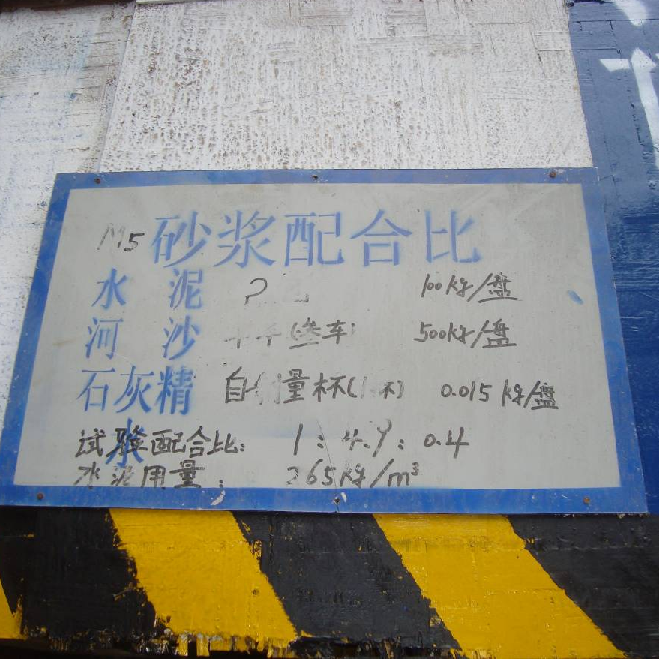 M5 砂浆配合比
水泥 2 100kg/盘
河沙 (叁车) 500kg/盘
石灰精 自 量杯( 杯) 0.015kg/盘
水
试验配合比: 1:4.9:0.4
水泥用量: 265kg/m³